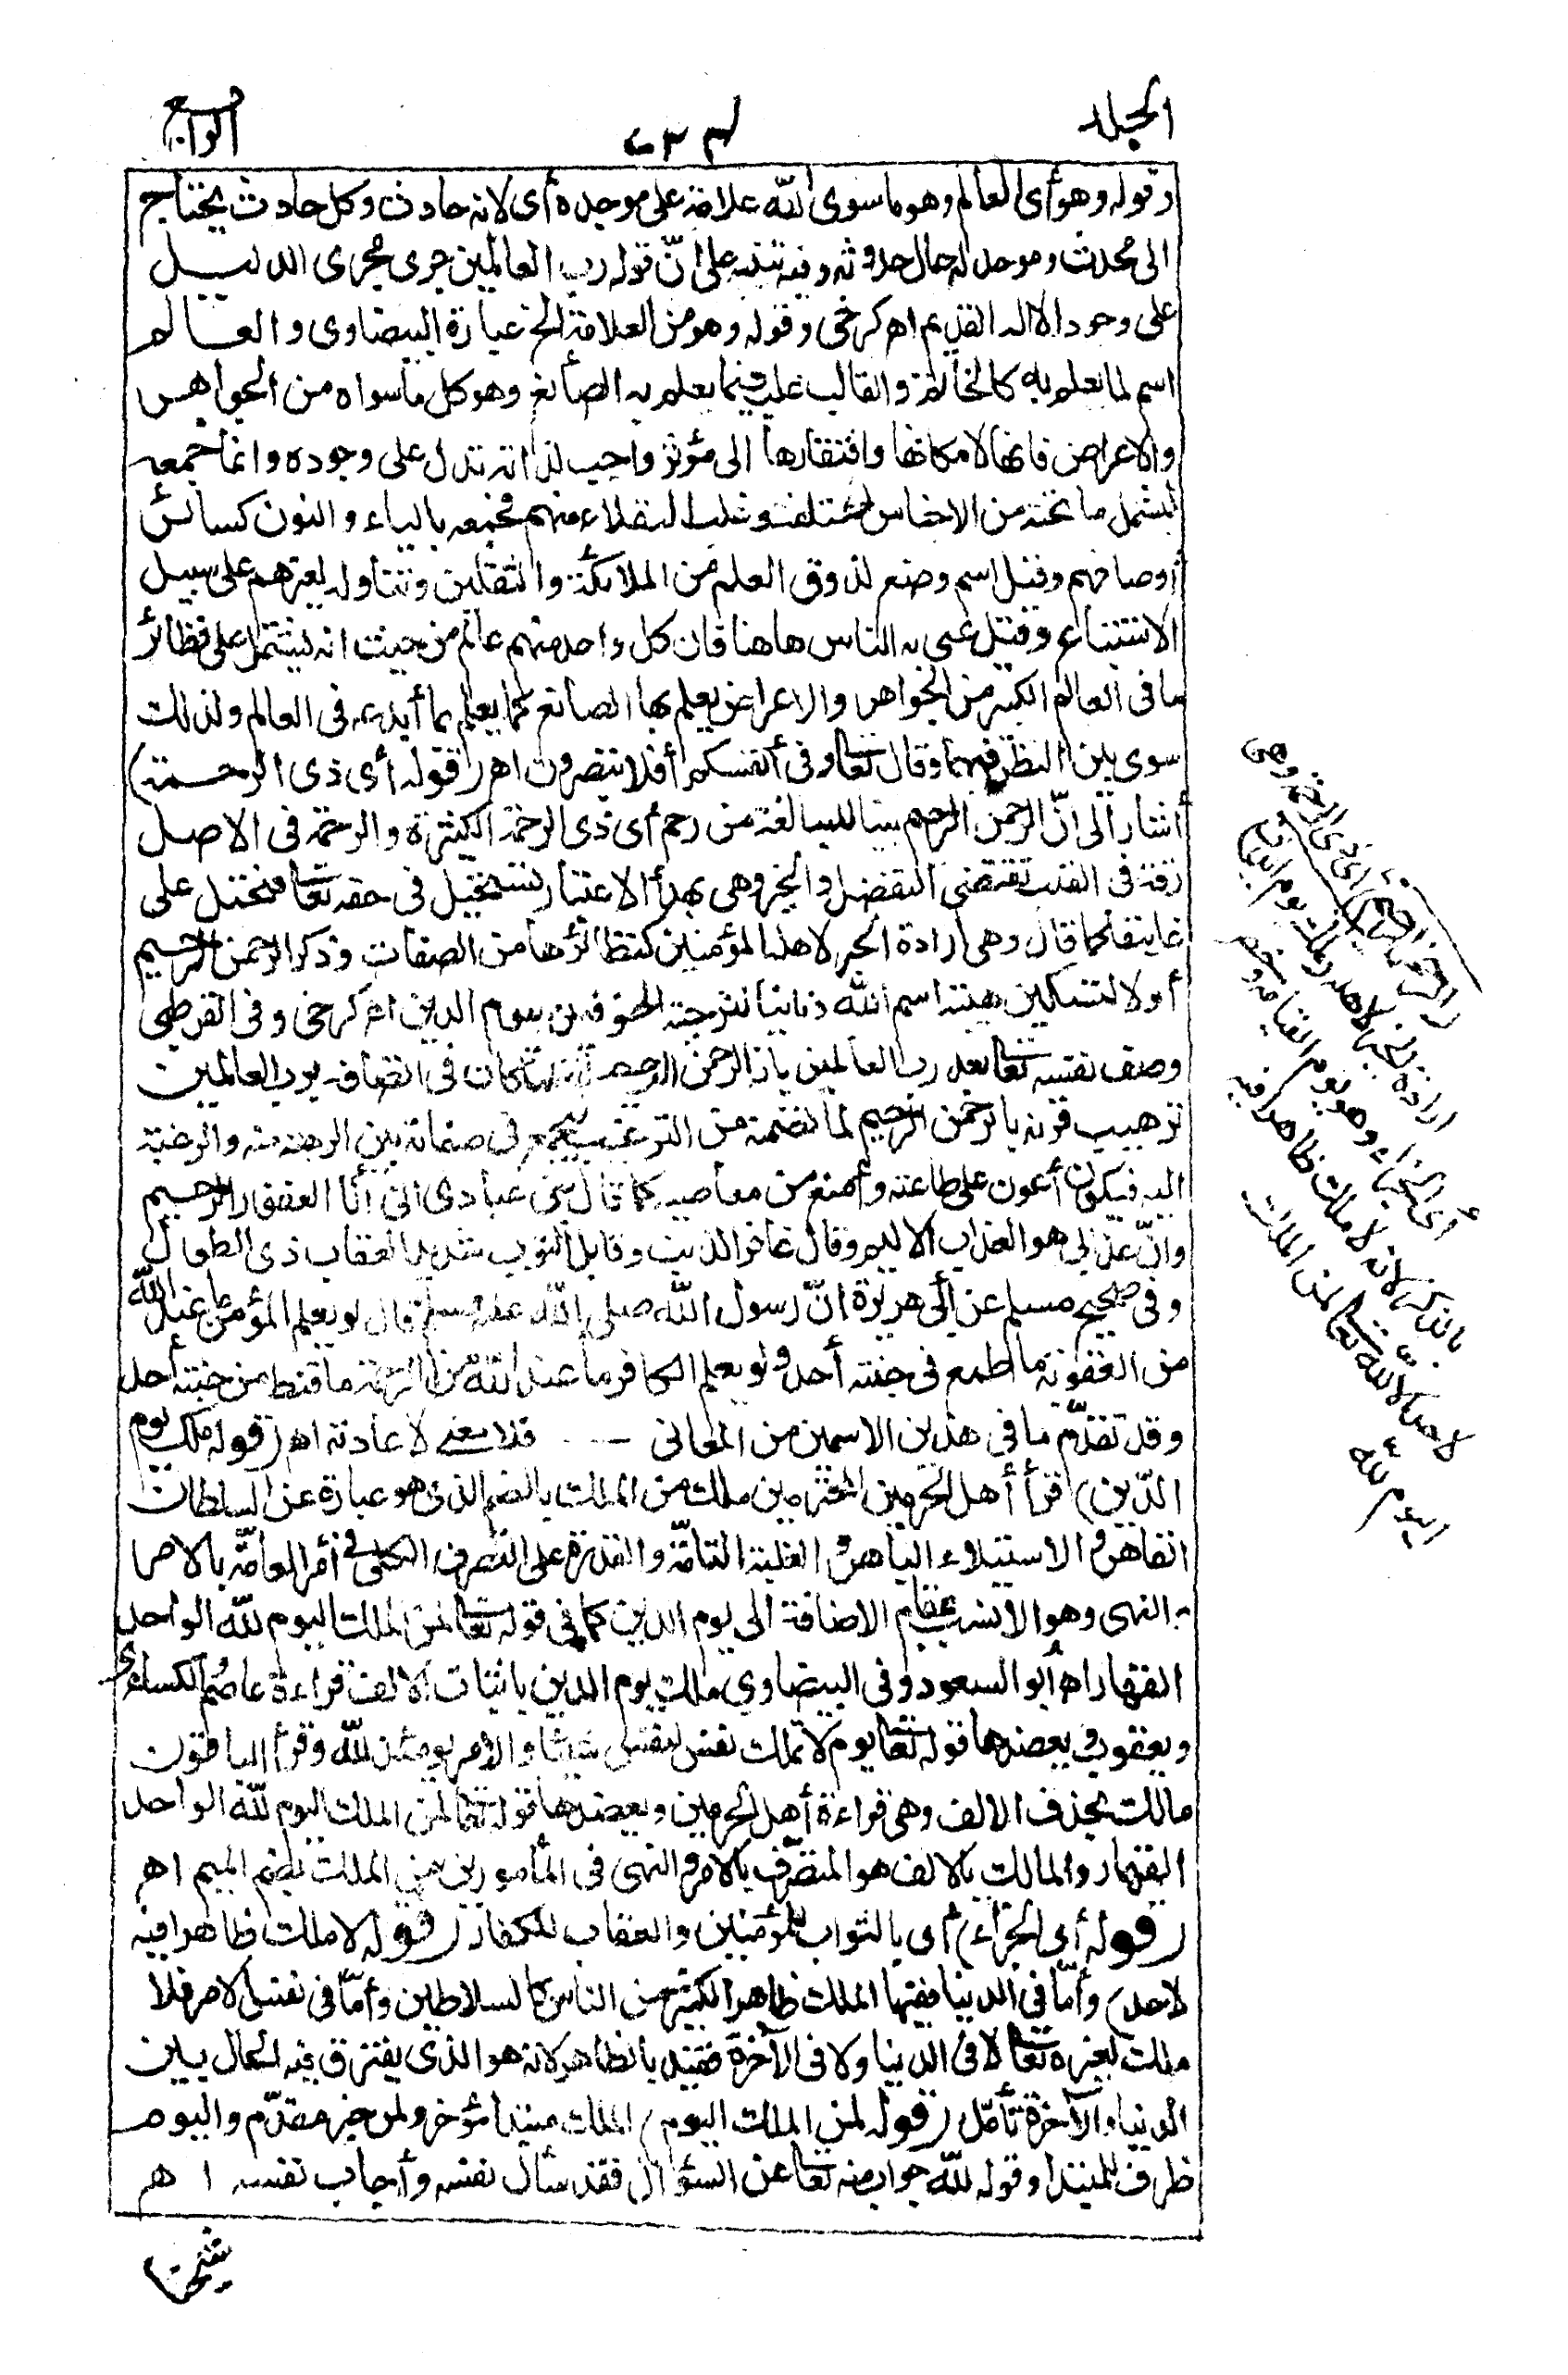 الجلد
٦٣٧
الرابع
(قوله وهو أى العالم وهو ما سوى الله علامة على موجده أى لانه حادث وكل حادث يحتاج
الى محدث وموجد له حال حدوثه وفيه تنبيه على أنّ قوله رب العالمين جرى مجرى الدليـــل
على وجود الاله القديم اهـ كرخى وقوله وهو من العلامة الخ عبارة البيضاوى والعـــالم
اسم لما يعلم به كالخاتم والقالب غلب فيما يعلم به الصانع وهو كل ما سواه من الجواهر
والاعراض فانها لامكانها وافتقارها الى مؤثر واجب لذاته تدل على وجوده وانما جمعه
ليشمل ما تحته من الاجناس المختلفة وغلب العقلاء منهم فجمعه بالياء والنون كسائر
أوصافهم وقيل اسم وضع لذوى العلم من الملائكة والثقلين وتناوله لغيرهم على سبيل
الاستتباع وقيل عنى به الناس ها هنا فان كل واحد منهم عالم من حيث انه يشتمل على نظائر
ما فى العالم الكبير من الجواهر والاعراض يعلم بها الصانع كما يعلم بما أبدعه فى العالم ولذلك
سوى بين النظر فيهما وقال تعالى وفى أنفسكم أفلا تبصرون اهـ (قوله أى ذى الرحـــمة)
أشار الى انّ الرحمن الرحيم بنيا للمبالغة من رحم أى ذى الرحمة الكثيرة والرحمة فى الاصل
رقة فى القلب تقتضى التفضل والخير وهى بهذا الاعتبار تستحيل فى حقه تعالى فتحمل على
غايتها كما قال وهى ارادة الخير لاهله المؤمنين كنظائرها من الصفات وذكر الرحمن الرحيم
أولا لتسكين هيبة اسم الله وثانيا لترجية الخوف من يوم الدين اهـ كرخى وفى القرطبى
وصف نفسه تعالى بعد رب العالمين بانه الرحمن الرحيم لانه لما كان فى اتصافه برب العالمين
ترهيب قرنه بالرحمن الرحيم لما تضمنه من الترغيب ليجمع فى صفاته بين الرهبة منه والرغبة
اليه فيكون أعون على طاعته وأمنع من معاصيه كما قال نبئ عبادى انى أنا الغفور الرحيم
وانّ عذابى هو العذاب الاليم وقال غافر الذنب وقابل التوب شديد العقاب ذى الطول
وفى صحيح مسلم عن أبى هريرة انّ رسول الله صلى الله عليه وسلم قال لو يعلم المؤمن ما عند الله
من العقوبة ما طمع فى جنته أحد ولو يعلم الكافر ما عند الله من الرحمة ما قنط من جنته أحد
وقد تقدّم ما فى هذين الاسمين من المعانى فلا معنى لاعادته اهـ (قوله ملك يوم
الدّين) قرأ أهل الحرمين المحترمين ملك من الملك بالضم الذى هو عبارة عن السلطان
القاهر والاستيلاء الباهر والغلبة التامّة والقدرة على التصرف الكلى فى أمر العامّة بالامر
والنهى وهو الانسب بمقام الاضافة الى يوم الدين كما فى قوله تعالى لمن الملك اليوم لله الواحد
القهار اهـ أبو السعود وفى البيضاوي مالك يوم الدين باثبات الالف قراءة عاصم والكسائى
ويعقوب ويعضدها قوله تعالى يوم لا تملك نفس لنفس شيئا والأمر يومئذ لله وقرأ الباقون
مالك بحذف الالف وهى قراءة أهل الحرمين ويعضدها قوله تعالى لمن الملك اليوم لله الواحد
القهار والمالك بالالف هو المتصرّف بالامر والنهى فى المأمورين من الملك بضم الميم اهـ
(قوله أى الجزاء) أى بالثواب للمؤمنين والعقاب للكفار (قوله لا ملك ظاهرا فيه
لاحد) وأمّا فى الدنيا ففيها الملك ظاهرا لكثير من الناس كالسلاطين وأمّا فى نفس الامر فلا
ملك لغيره تعالى لا فى الدنيا ولا فى الآخرة فقيد بالظاهر لانه هو الذى يفترق فيه الحال بـين
الدنيا والآخرة تأمّل (قوله لمن الملك اليوم) الملك مبتدأ مؤخر ولمن خبر مقدّم واليوم
ظرف للمبتدا وقوله لله جواب منه تعالى عن السؤال فقد سأل نفسه وأجاب نفسه ا هـ
شيخنا
(الرحمن الرحيم) أى ذى الرحمة وهى
ارادة الخير لاهله (ملك يوم الدين)
أى الجزاء وهو يوم القيامة وخص
بالذكر لانه لا ملك ظاهرا فيه
لاحد الا لله تعالى لمن الملك
اليوم لله